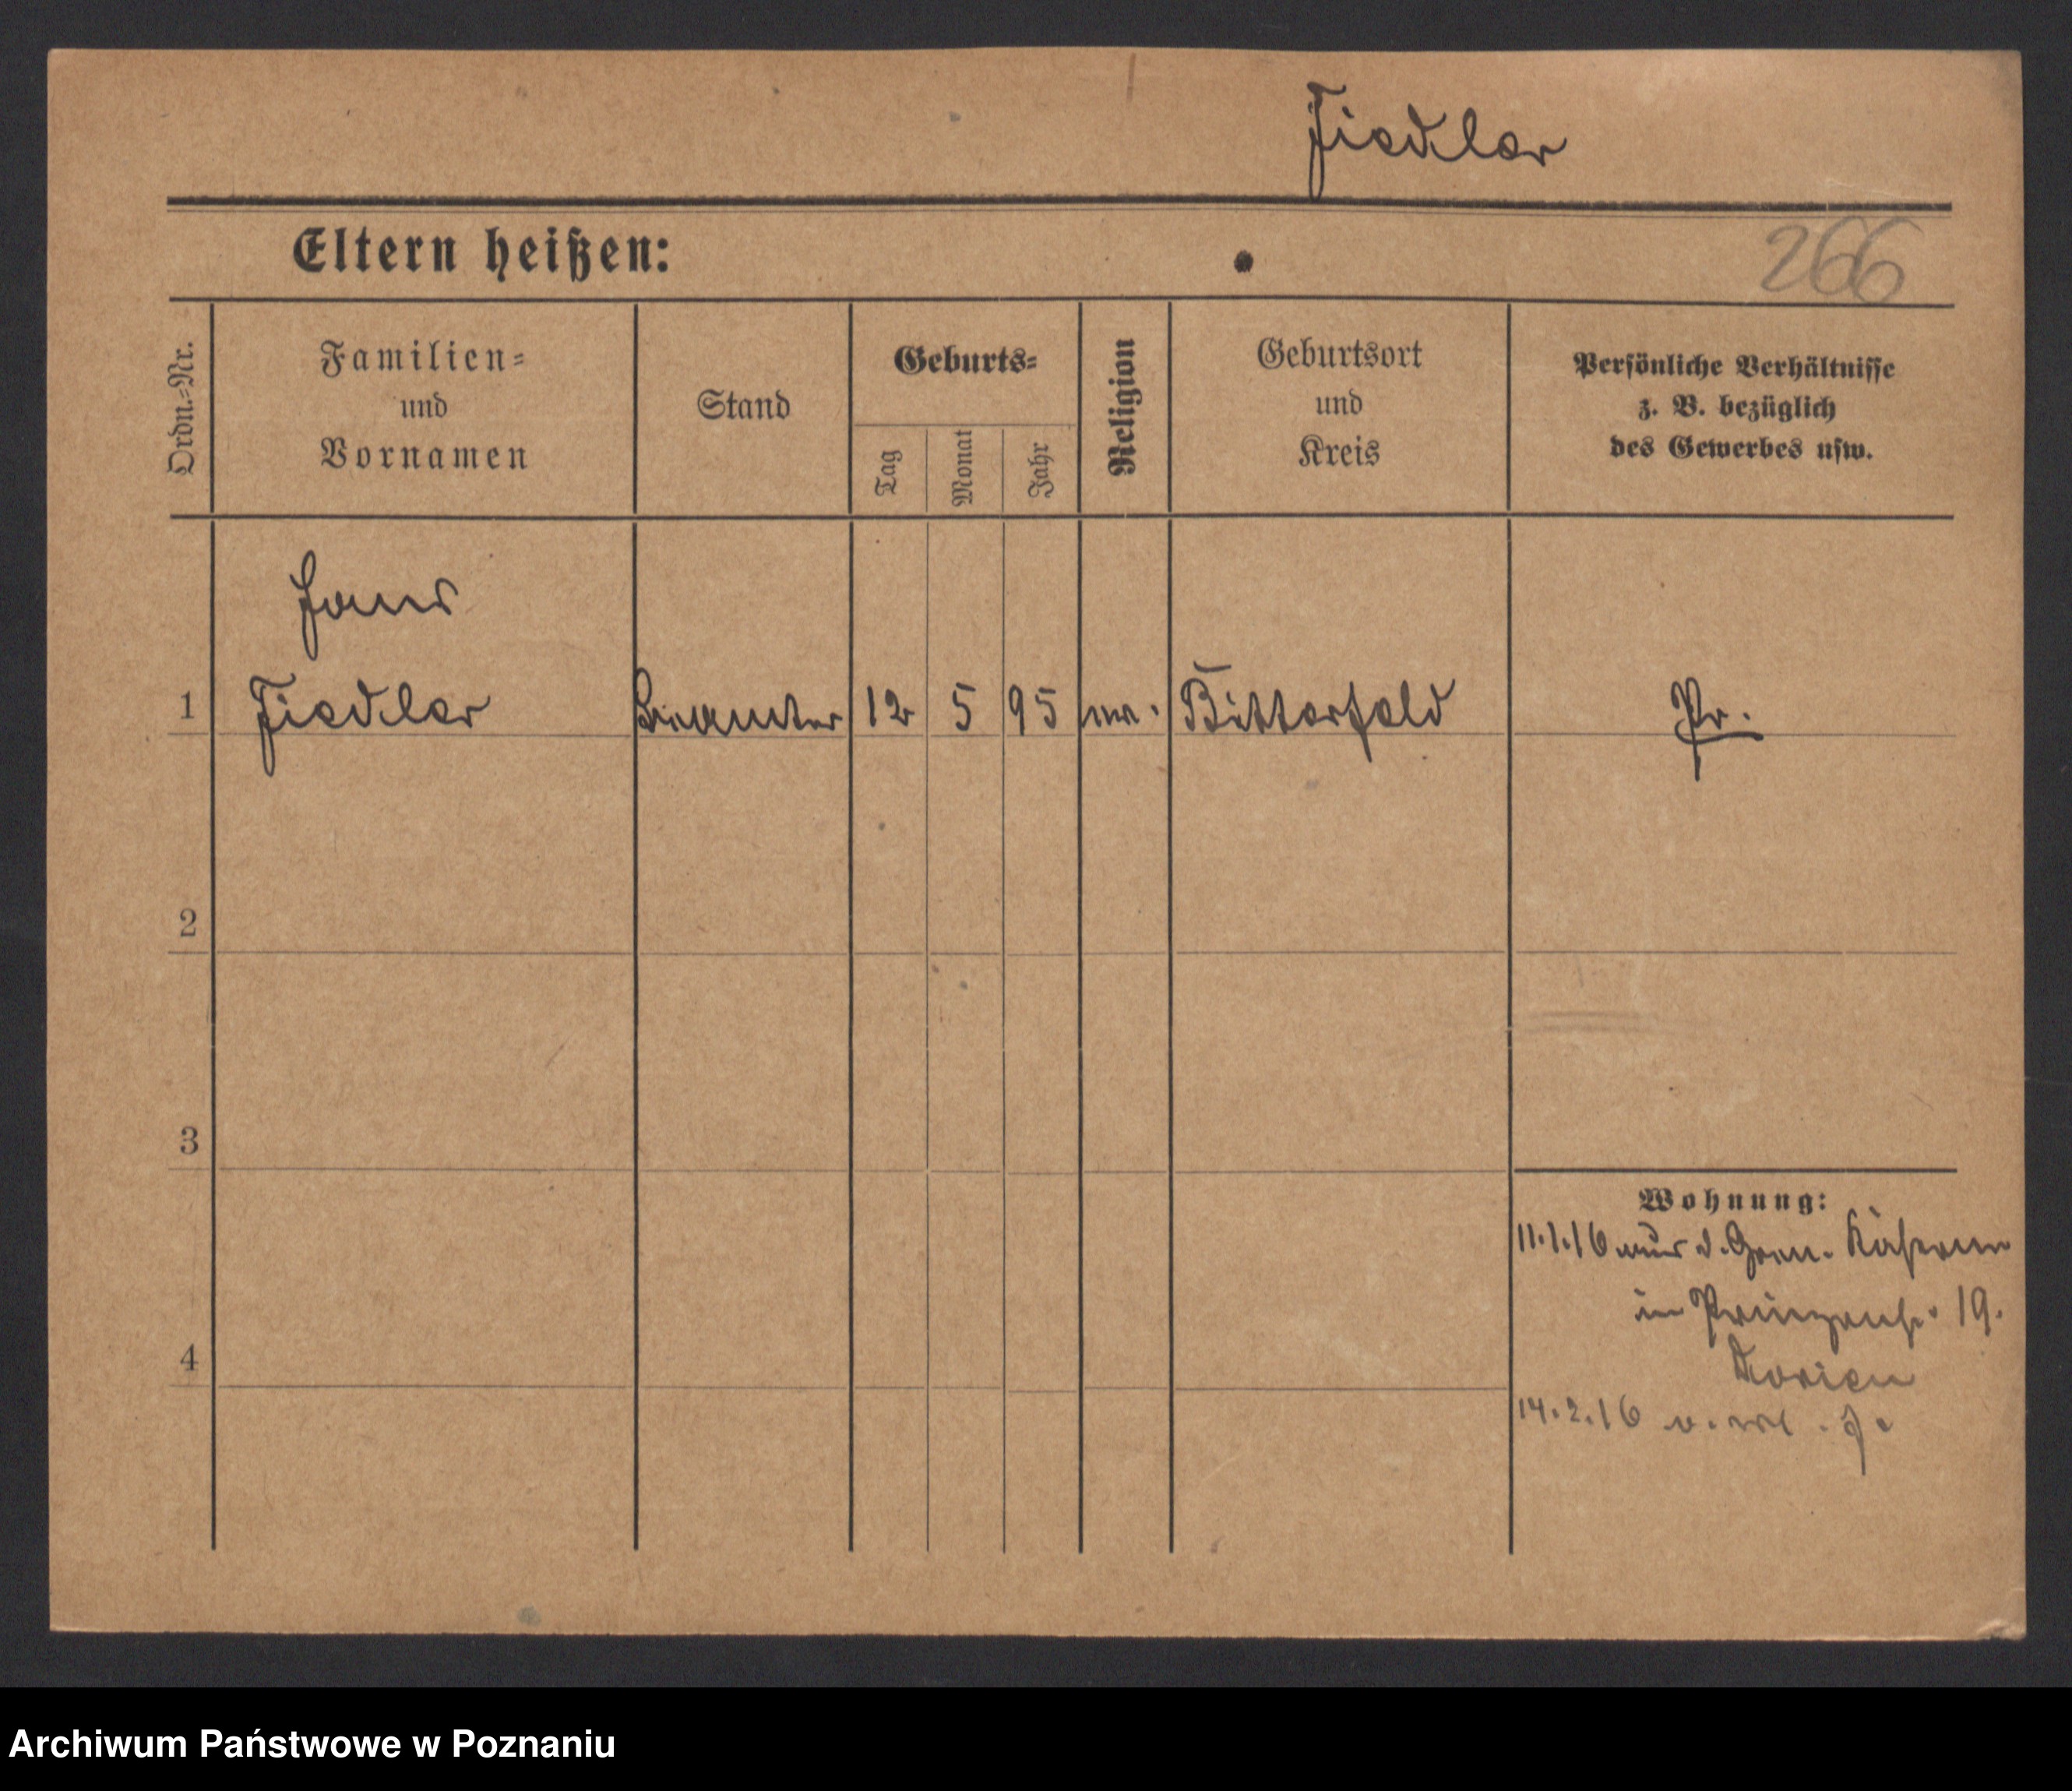 Fiedler
Eltern heißen:
266
Ordn.=Nr.
Familien=
und
Vornamen
Stand
Geburts=
Tag
Monat
Jahr
Religion
Geburtsort
und
Kreis
Persönliche Verhältnisse
z. B. bezüglich
des Gewerbes usw.
Hans
1 Fiedler Beamter 12 5 95 ev. Bitterfeld Pr.
2
3
4
Wohnung:
11.1.16 aus d. Gren. Kaserne
in Prinzenst. 19.
14.2.16
Archiwum Państwowe w Poznaniu